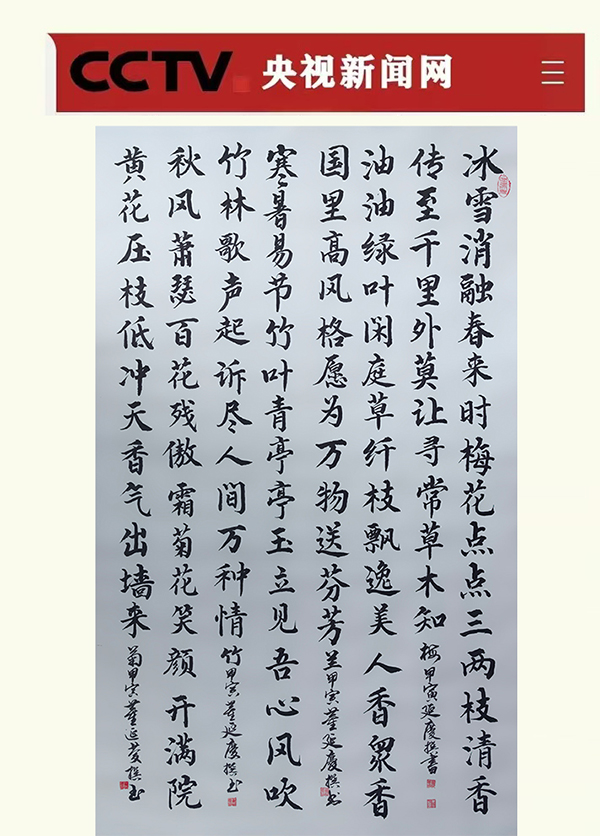 CCTV 央视新闻网
冰雪消融春来时梅花点点三两枝清香
传至千里外莫让寻常草木知 梅甲寅延庆撰书
油油绿叶闲庭草纤枝飘逸美人香眾香
国里高风格愿为万物送芬芳 兰甲寅董延庆撰书
寒暑易节竹叶青亭亭玉立见吾心风吹
竹林歌声起诉尽人间万种情 竹甲寅董延庆撰书
秋风萧瑟百花残傲霜菊花笑颜开满院
黄花压枝低冲天香气出墙来 菊甲寅董延庆撰书